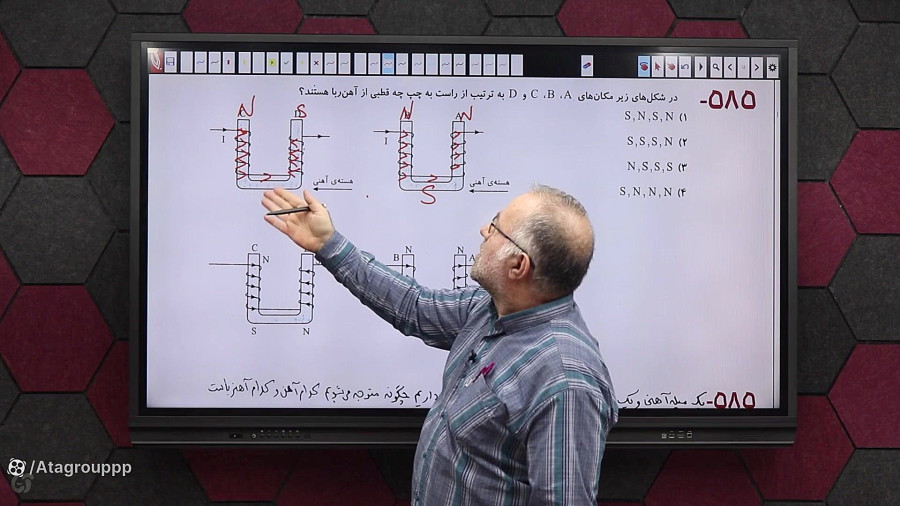 ۵۸۵- در شکل‌های زیر مکان‌های A، B، C و D به ترتیب از راست به چپ چه قطبی از آهن‌ربا هستند؟
۱) S , N , S , N
۲) S , S , S , N
۳) N , S , S , S
۴) S , N , N , N
N S N N
I I
هسته‌ی آهنی هسته‌ی آهنی
S
C N B N N A
S N
۵۸۵- یک میله آهنی و یک
داریم چگونه متوجه می‌شویم کدام آهن و کدام آهنرباست
/Atagrouppp